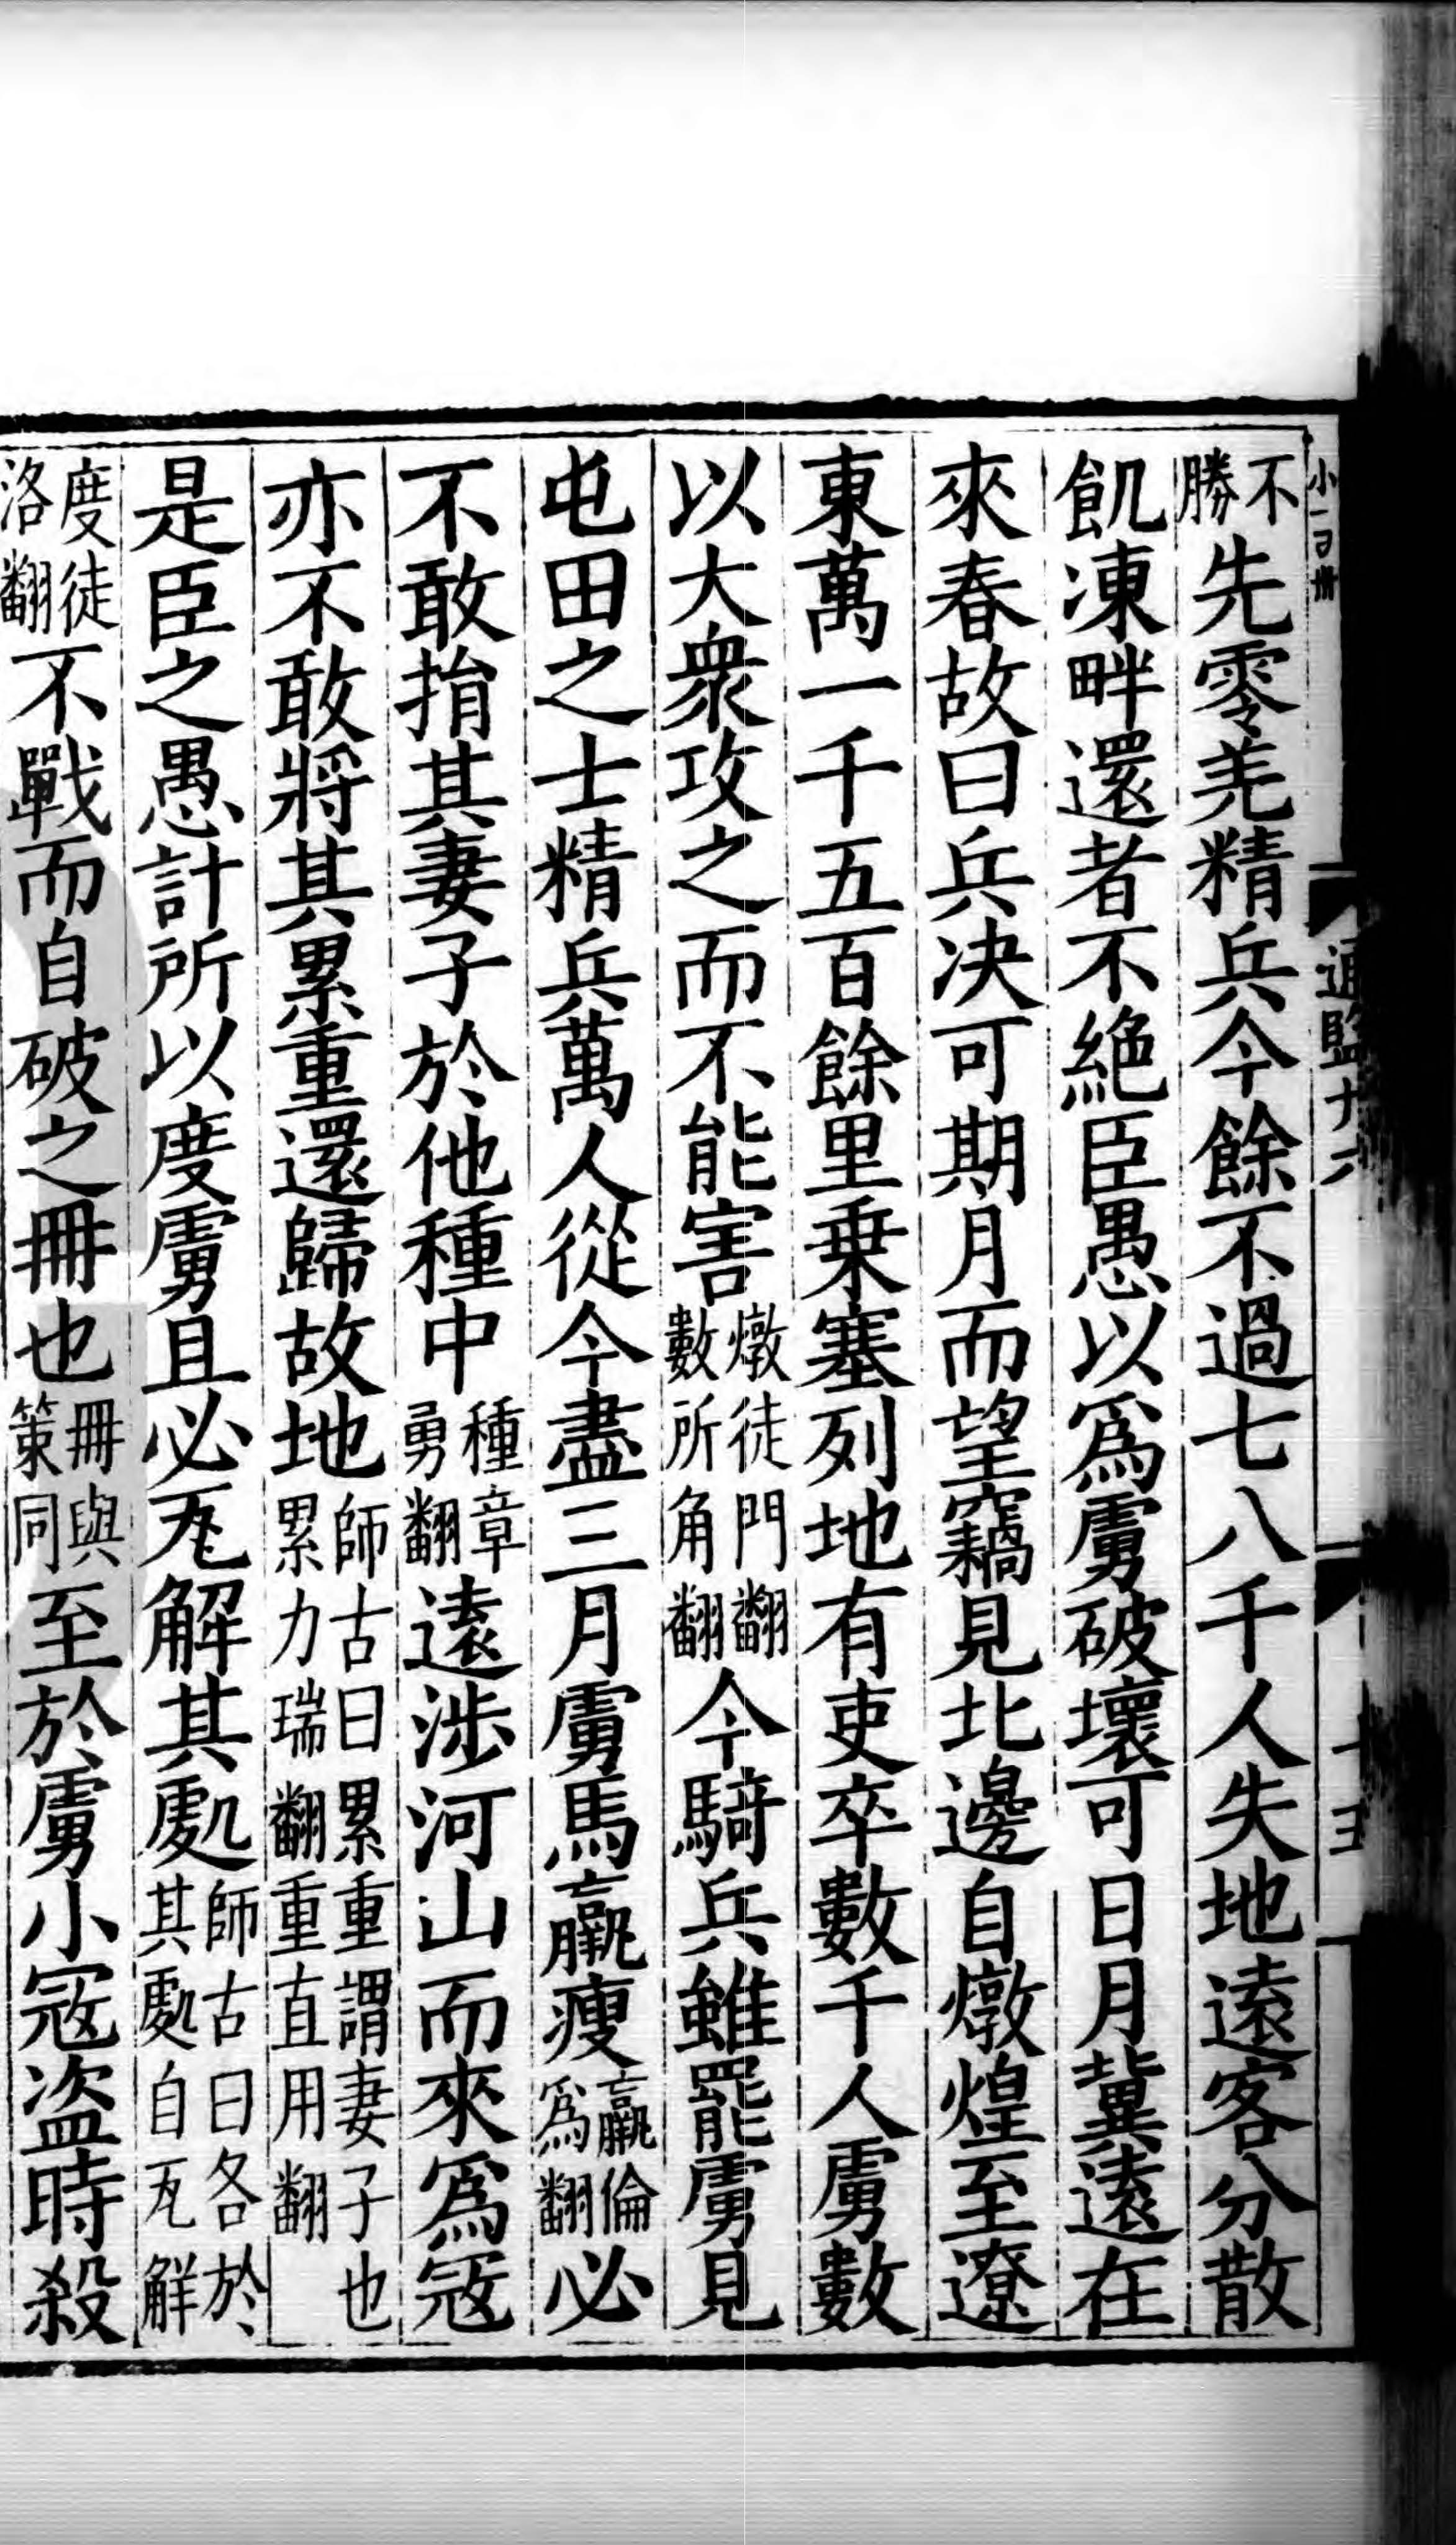 不勝先零羌精兵今餘不過七八千人失地遠客分散
飢凍畔還者不絕臣愚以爲虜破壞可日月冀遠在
來春故曰兵决可期月而望竊見北邊自燉煌至遼
東萬一千五百餘里乗塞列地有吏卒數千人虜數
以大衆攻之而不能害燉徒門翻數所角翻今騎兵雖罷虜見
屯田之士精兵萬人從今盡三月虜馬羸瘦羸倫爲翻必
不敢捐其妻子於他種中種章勇翻遠涉河山而來爲冦
亦不敢將其累重還歸故地師古曰累重謂妻子也累力瑞翻重直用翻
是臣之愚計所以度虜且必瓦解其處師古曰各於其處自瓦解
度徒洛翻不戰而自破之冊也冊與策同至於虜小冦盗時殺
通鑑